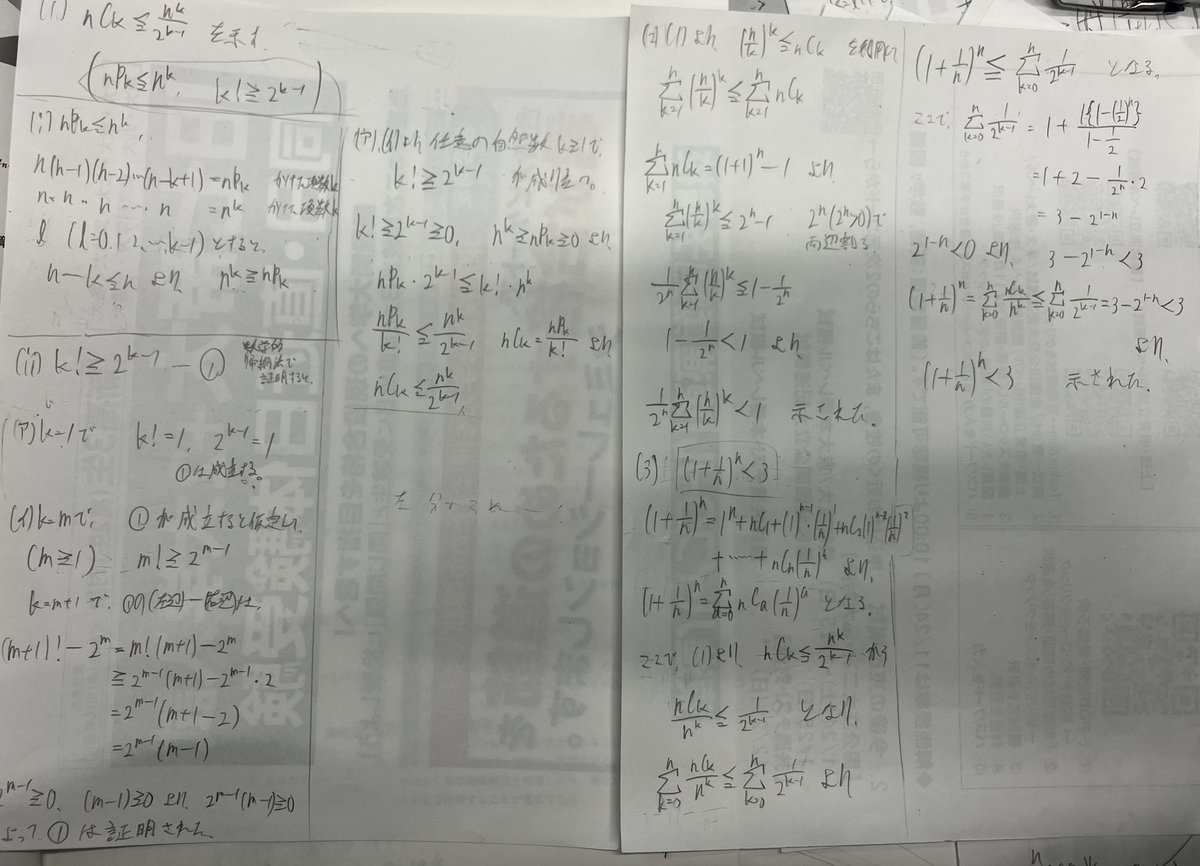 (1) nCk ≦ n^k/2^(k-1) を示す
(nPk ≦ n^k, k! ≧ 2^(k-1))
(i) nPk ≦ n^k,
n(n-1)(n-2)…(n-k+1) = nPk かけた項数k
n・n・n・…・n = n^k かけた項数k
l (l=0,1,2,…,k-1)とすると,
n-k ≦ n より n^k ≧ nPk
(ii) k! ≧ 2^(k-1) ―① 数学的帰納法で証明すると,
(ア) k=1で k!=1, 2^(k-1)=1
①は成立する。
(イ) k=mで, ①が成立すると仮定し,
(m≧1) m! ≧ 2^(m-1)
k=m+1で, ①の(左辺)-(右辺)は,
(m+1)! - 2^m = m!(m+1) - 2^m
≧ 2^(m-1)(m+1) - 2^(m-1)・2
= 2^(m-1)(m+1-2)
= 2^(m-1)(m-1)
2^(m-1) ≧ 0, (m-1) ≧ 0 より, 2^(m-1)(m-1) ≧ 0
よって, ①は証明された
(ア),(イ)より 任意の自然数 k≧1で,
k! ≧ 2^(k-1) が成り立つ。
k! ≧ 2^(k-1) ≧ 0, n^k ≧ nPk ≧ 0 より,
nPk・2^(k-1) ≦ k!・n^k
nPk/k! ≦ n^k/2^(k-1) nCk = nPk/k! より
nCk ≦ n^k/2^(k-1)
(2) (1)より (n/k)^k ≦ nCk を利用して
Σ[k=1→n] (n/k)^k ≦ Σ[k=1→n] nCk
Σ[k=1→n] nCk = (1+1)^n - 1 より
Σ[k=1→n] (n/k)^k ≦ 2^n - 1 2^n(2^n>0)で
両辺割る
1/2^n Σ[k=1→n] (n/k)^k ≦ 1 - 1/2^n
1 - 1/2^n < 1 より,
1/2^n Σ[k=1→n] (n/k)^k < 1 示された。
(3) (1+1/n)^n < 3
(1+1/n)^n = 1^n + nC1+(1)^(n-1)・(1/n)^1 + nC2(1)^(n-2)(1/n)^2
+ … + nCn(1/n)^n より,
(1+1/n)^n = Σ[a=0→n] nCa(1/n)^a となる。
ここで, (1)より, nCk ≦ n^k/2^(k-1) から
nCk/n^k ≦ 1/2^(k-1) となり,
Σ[k=0→n] nCk/n^k ≦ Σ[k=0→n] 1/2^(k-1) より
(1+1/n)^n ≦ Σ[k=0→n] 1/2^(k-1) となる。
ここで, Σ[k=0→n] 1/2^(k-1) = 1 + 1{1-(1/2)^n}/(1-1/2)
= 1+2 - 1/2^n・2
= 3 - 2^(1-n)
2^(1-n) < 0 より, 3 - 2^(1-n) < 3
(1+1/n)^n = Σ[k=0→n] nCk/n^k ≦ Σ[k=0→n] 1/2^(k-1) = 3 - 2^(1-n) < 3
より,
(1+1/n)^n < 3 示された。